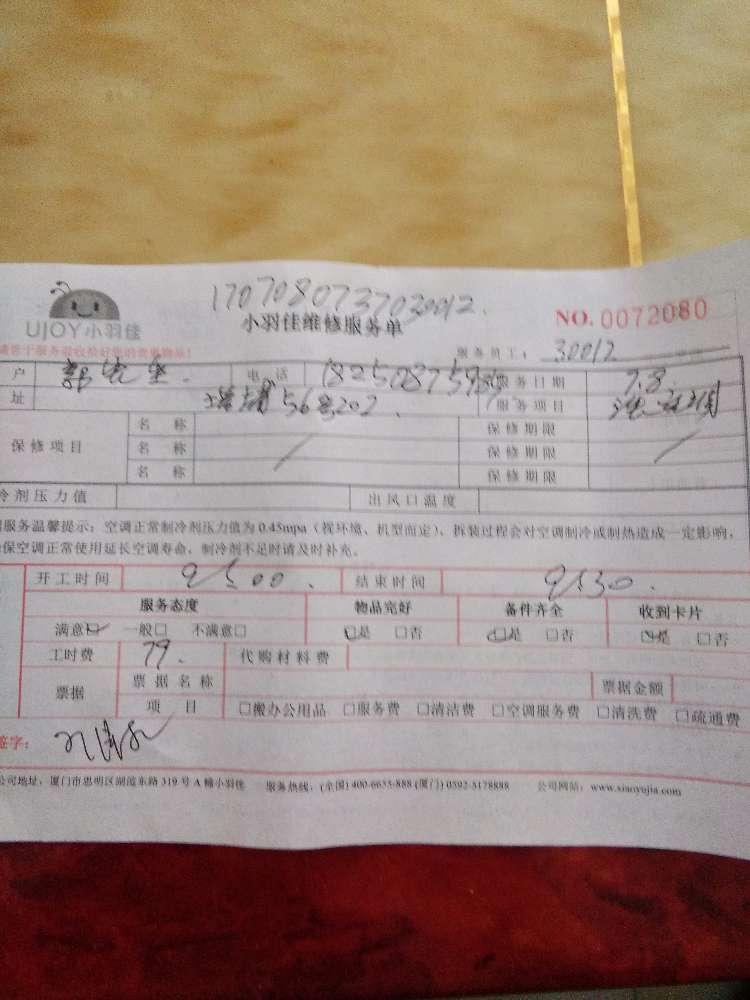 1707080737030012
UJOY小羽佳
小羽佳维修服务单
NO. 0072080
服务员工: 30012
户 电话 服务日期 7.8
址 568202 服务项目
保修项目 名称 保修期限
名称 保修期限
名称 保修期限
冷剂压力值 出风口温度
服务温馨提示: 空调正常制冷剂压力值为 0.45mpa (视环境、机型而定), 拆装过程会对空调制冷或制热造成一定影响,
保空调正常使用延长空调寿命, 制冷剂不足时请及时补充。
开工时间 9:00 结束时间 9:30
服务态度 物品完好 备件齐全 收到卡片
满意☑ 一般□ 不满意□ ☑是 □否 ☑是 □否 ☑是 □否
工时费 79. 代购材料费
票据 票据名称 票据金额
项目 □搬办公用品 □服务费 □清洁费 □空调服务费 □清洗费 □疏通费
签字:
公司地址: 厦门市思明区湖滨东路 319 号 A 幢小羽佳 服务热线: (全国) 400-6655-888 (厦门) 0592-5178888 公司网站: www.xiaoyujia.com